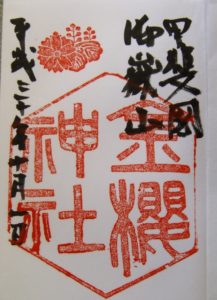 甲斐国
御嶽山
金櫻
神社
平成二十年十月一日